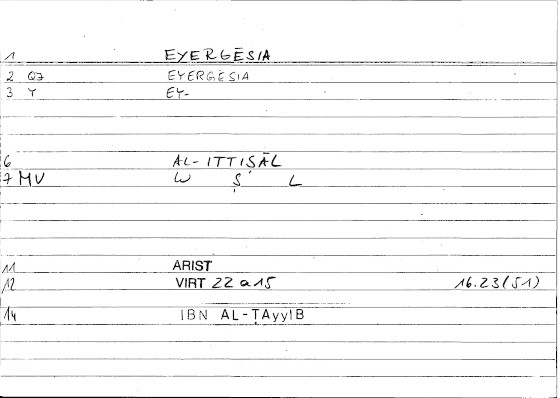 1 EYERGĒSIA
2 Q7 EYERGĒSIA
3 Y EY-
6 AL-ITTIṢĀL
7 MV W Ṣ L
11 ARIST
12 VIRT 22 a 15 16.23(51)
14 IBN AL-ṬAyyIB